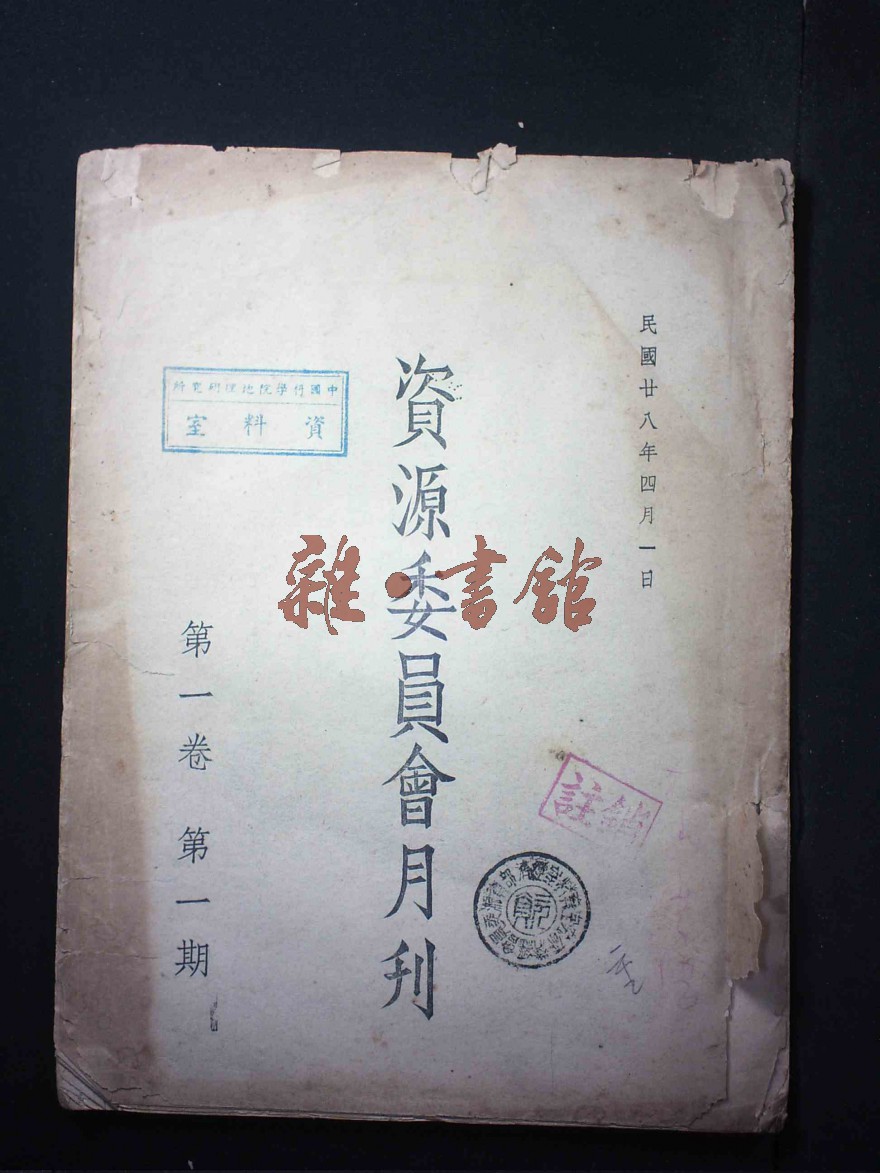 民國廿八年四月一日
資源委員會月刊
第一卷 第一期
中國科學院地理研究所
資料室
雜·書館
註銷